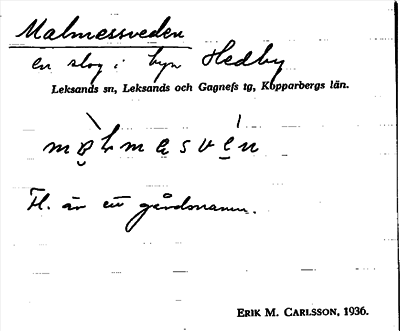 Malmessveden
en slog i byn Hedby
Leksands sn, Leksands och Gagnefs tg, Kopparbergs län.
mɑ̀lmesvén
Fl. är ett gårdsnamn.
ERIK M. CARLSSON, 1936.